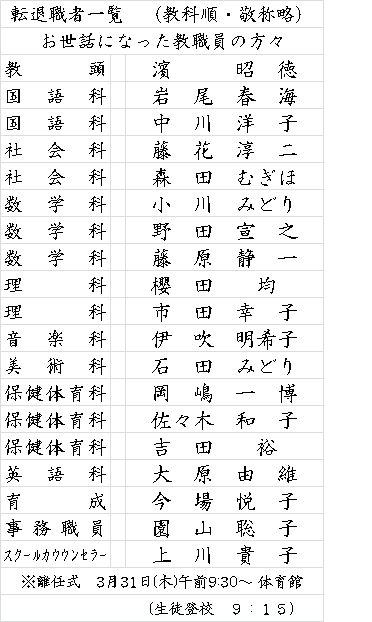 転退職者一覧 （教科順・敬称略）
お世話になった教職員の方々
教頭 濱 昭徳
国語科 岩尾 春海
国語科 中川 洋子
社会科 藤花 淳二
社会科 森田 むぎほ
数学科 小川 みどり
数学科 野田 宣之
数学科 藤原 静一
理科 櫻田 均
理科 市田 幸子
音楽科 伊吹 明希子
美術科 石田 みどり
保健体育科 岡嶋 一博
保健体育科 佐々木 和子
保健体育科 吉田 裕
英語科 大原 由維
育成 今場 悦子
事務職員 園山 聡子
ｽｸｰﾙｶｳｳﾝｾﾗｰ 上川 貴子
※離任式 3月31日(木)午前9:30～ 体育館
（生徒登校 ９：１５）